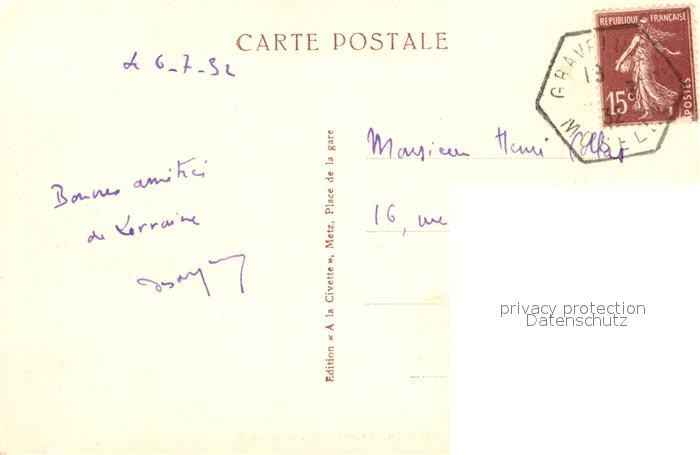 CARTE POSTALE
le 6-7-32
Bonnes amitiés
de Lorraine
Monsieur Henri
16, rue
Edition « A la Civette », Metz, Place de la gare
REPUBLIQUE FRANÇAISE
15c
POSTES
MOSELLE
privacy protection
Datenschutz